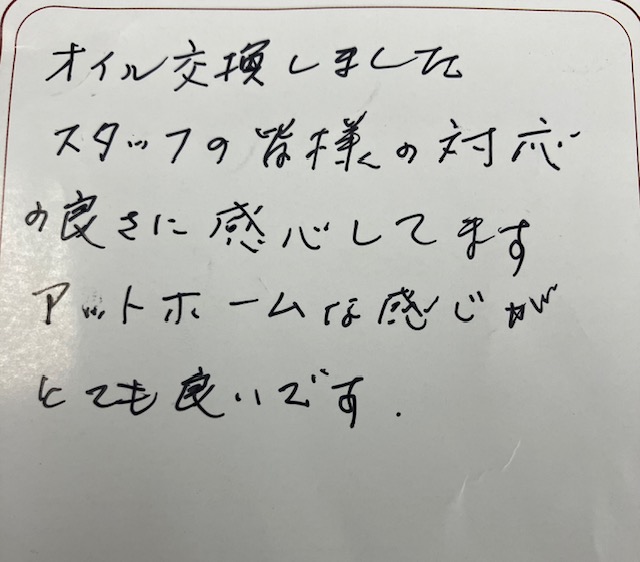 オイル交換しました
スタッフの皆様の対応
の良さに感心してます
アットホームな感じが
とても良いです.